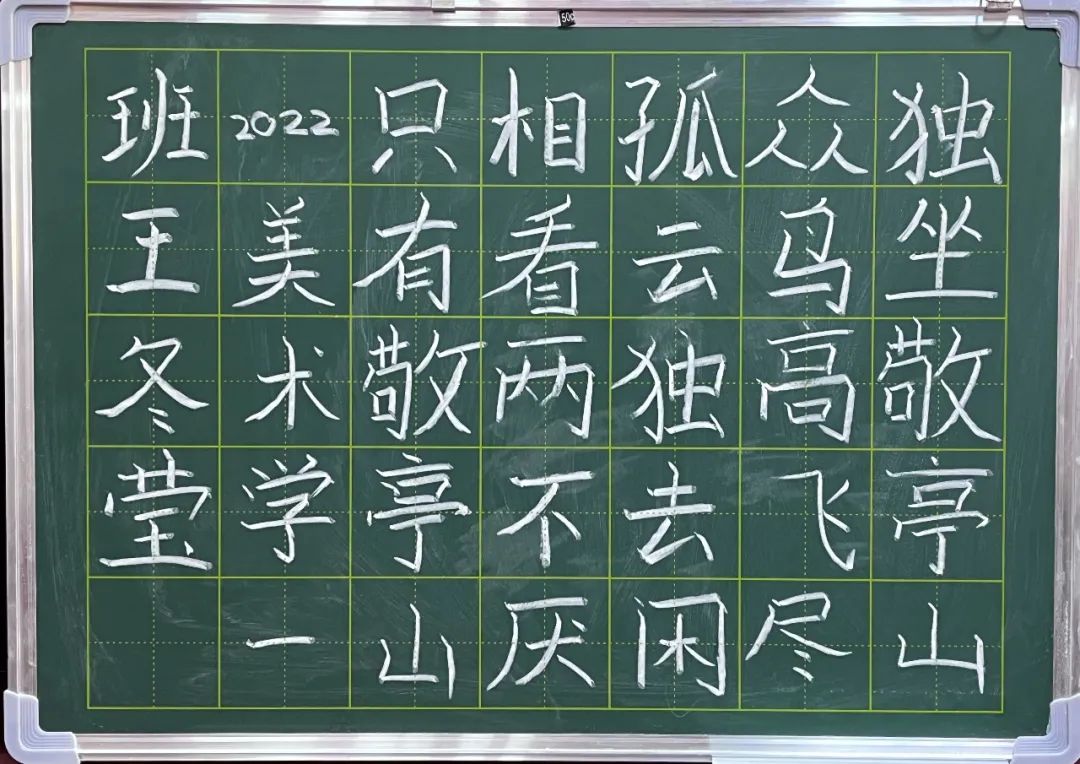 独坐敬亭山
众鸟高飞尽
孤云独去闲
相看两不厌
只有敬亭山
2022美术学一
班王冬莹